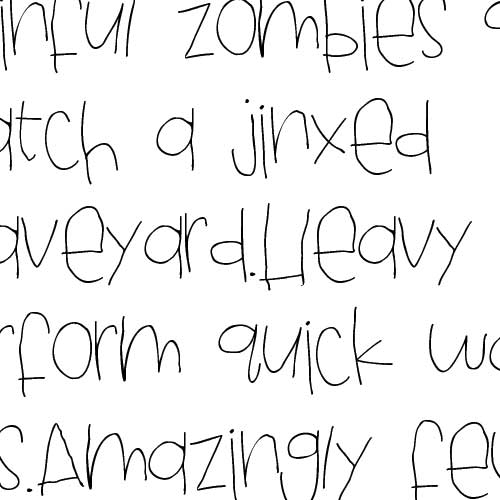 inful zombies
atch a jinxed
aveyard.Heavy
rform quick wo
s.Amazingly few